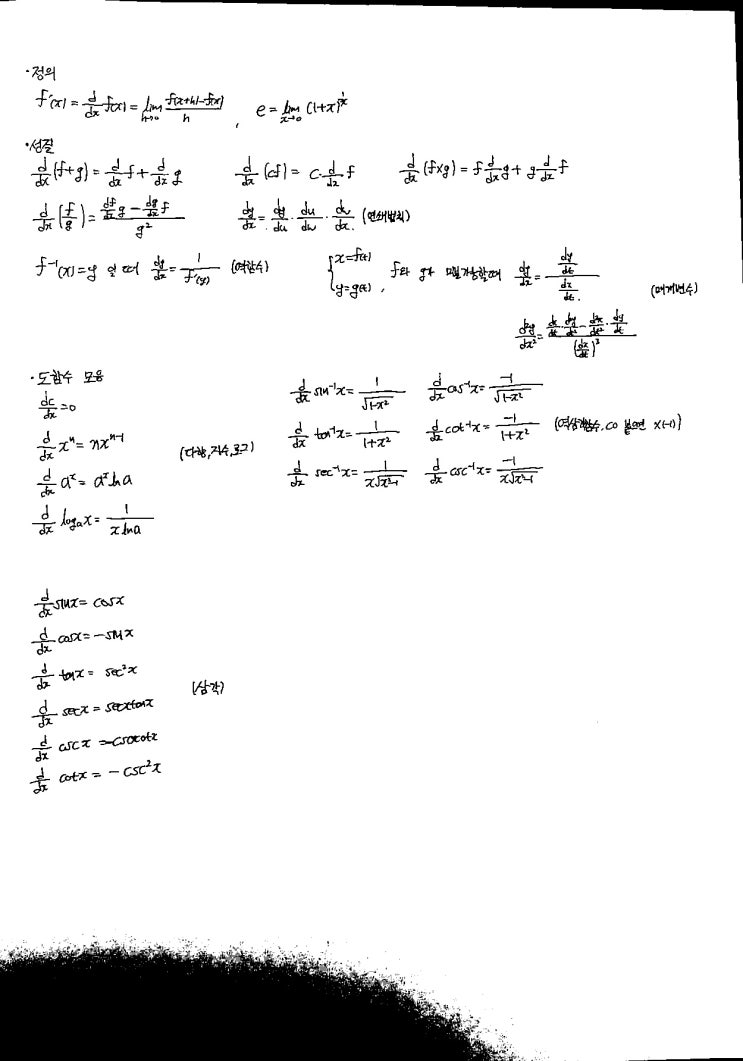 ·정의
f'(x) = d/dx f(x) = lim h→0 (f(x+h)-f(x))/h , e = lim x→0 (1+x)^(1/x)
·성질
d/dx (f+g) = d/dx f + d/dx g    d/dx (cf) = c·d/dx f    d/dx (f×g) = f d/dx g + g d/dx f
d/dx (f/g) = (df/dx g - dg/dx f)/g²    dy/dx = dy/du · du/dw · dw/dx. (연쇄법칙)
f⁻¹(x) = y 일 때 dy/dx = 1/f'(y) (역함수)    { x=f(t) y=g(t) , f와 g가 미분가능할때 dy/dx = (dy/dt)/(dx/dt). (매개변수)
d²y/dx² = (dx/dt · d²y/dt² - d²x/dt² · dy/dt)/(dx/dt)³
·도함수 모음
dc/dx = 0
d/dx xⁿ = nxⁿ⁻¹ (다항,지수,로그)
d/dx aˣ = aˣ ln a
d/dx logₐx = 1/(x ln a)
d/dx sin⁻¹x = 1/√(1-x²)    d/dx cos⁻¹x = -1/√(1-x²)
d/dx tan⁻¹x = 1/(1+x²)    d/dx cot⁻¹x = -1/(1+x²) (역삼각함수, co 붙으면 ×(-1))
d/dx sec⁻¹x = 1/(x√(x²-1))    d/dx csc⁻¹x = -1/(x√(x²-1))
d/dx sinx = cosx
d/dx cosx = -sinx
d/dx tanx = sec²x
d/dx secx = secxtanx (삼각)
d/dx cscx = -cscxcotx
d/dx cotx = -csc²x